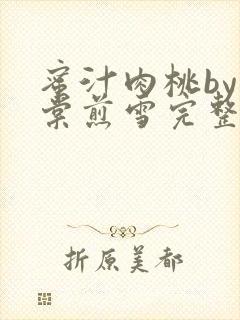 蜜汁肉桃by
棠煎雪完整
折原美都